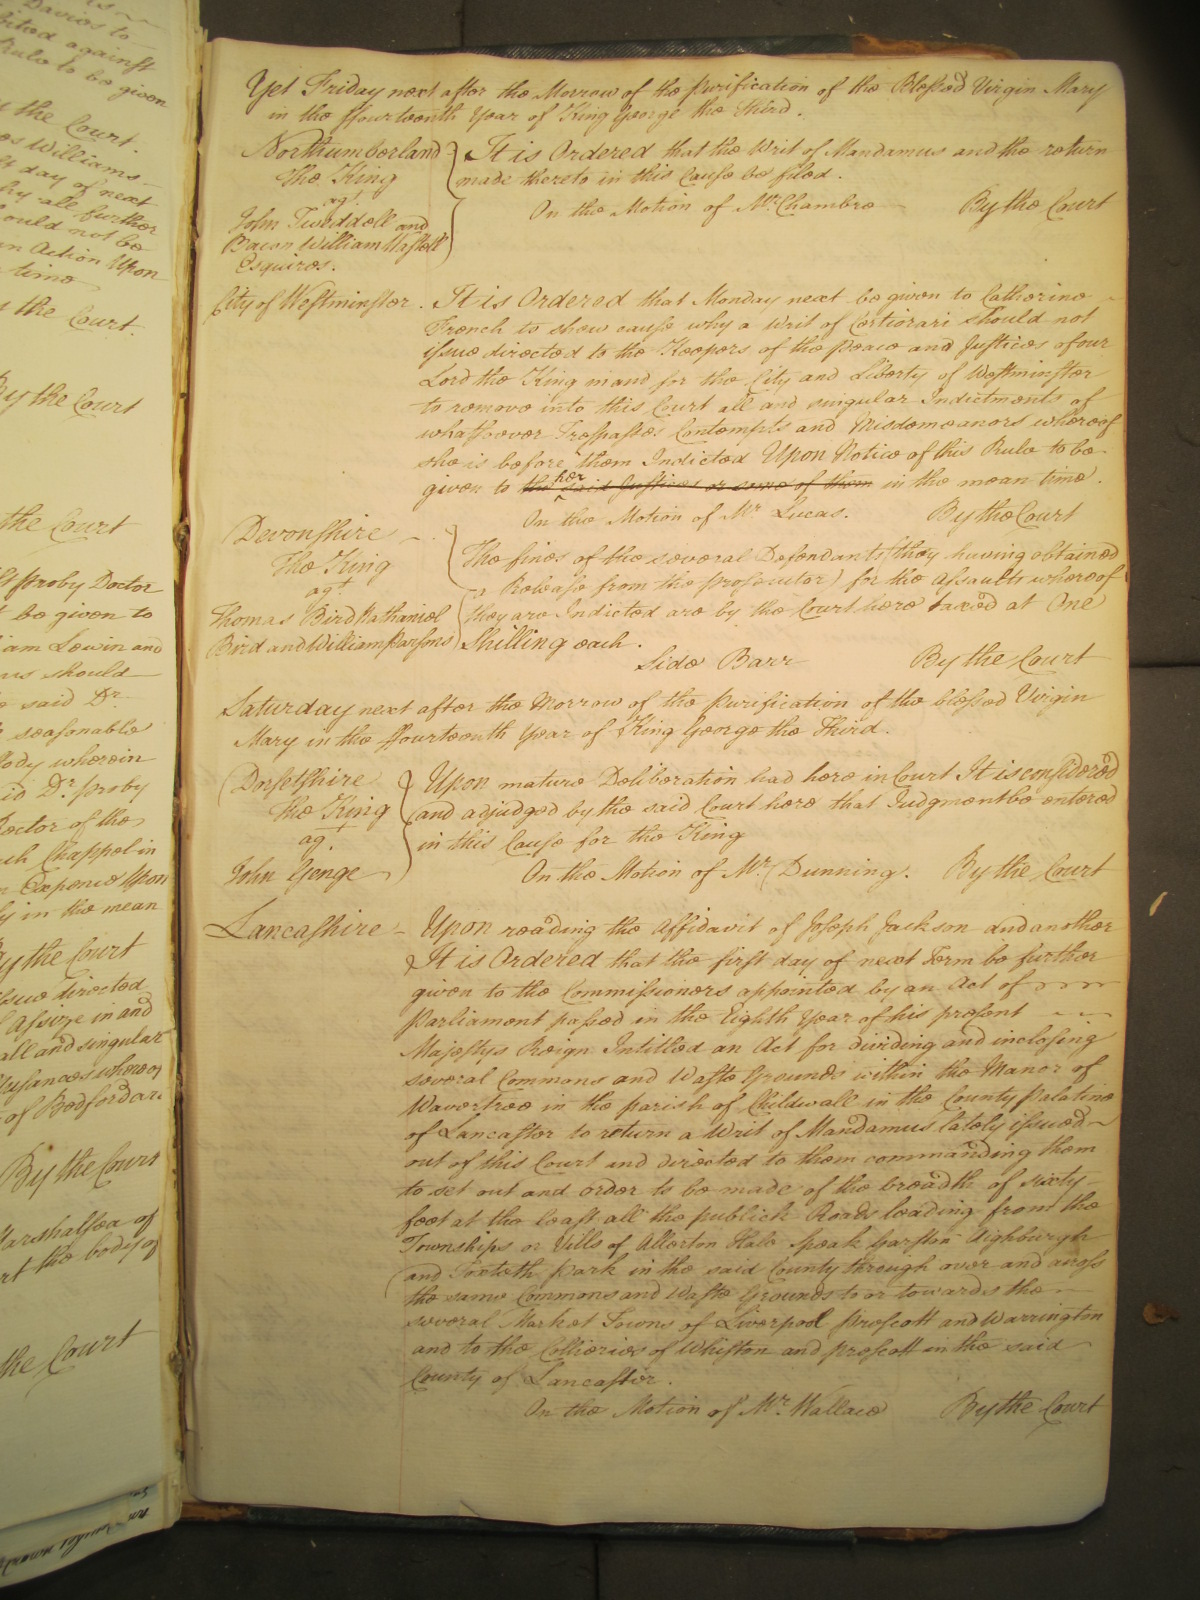 Davies to
against
Rule to be given
the Court.
Williams
day of next
all further
ould not be
an Action Upon
time
the Court.
By the Court
the Court
proby Doctor
be given to
iam Lewin and
should
said Dr.
seasonable
Body wherein
Dr. proby
Rector of the
Chappel in
Expence Upon
in the mean
By the Court
directed
Assize in and
all and singular
Nusances whereof
of Bedford are
By the Court
Marshalsea of
the body of
the Court
Yet Friday next after the Morrow of the Purification of the Blessed Virgin Mary
in the ffourteenth Year of King George the third.
Northumberland It is Ordered that the Writ of Mandamus and the return
The King made thereto in this Cause be filed.
agt. On the Motion of Mr. Chambre By the Court
John Tweddell and
Bacon William Wastell
Esquires.
City of Westminster. It is Ordered that Monday next be given to Catherine
French to shew cause why a Writ of Certiorari should not
issue directed to the Keepers of the peace and Justices of our
Lord the King in and for the City and Liberty of Westminster
to remove into this Court all and singular Indictments of
whatsoever Trespasses Contempts and Misdemeanors whereof
she is before them Indicted Upon Notice of this Rule to be
given to the said Justices or some of them her in the mean time.
On the Motion of Mr. Lucas. By the Court
Devonshire
The King The fines of the several Defendants (they having obtained
agt. a Release from the prosecutor) for the Assaults whereof
Thomas Bird Nathaniel they are Indicted are by the Court here taxed at One
Bird and William Parsons Shilling each.
Side Barr By the Court
Saturday next after the Morrow of the Purification of the blessed Virgin
Mary in the ffourteenth Year of King George the Third.
Dorsetshire Upon mature Deliberation had here in Court It is considered
The King and adjudged by the said Court here that Judgment be entered
agt. in this Cause for the King
John Genge On the Motion of Mr. Dunning. By the Court
Lancashire Upon reading the Affidavit of Joseph Jackson and another
It is Ordered that the first day of next Term be further
given to the Commissioners appointed by an Act of
Parliament passed in the Eighth Year of his present
Majestys Reign Intitled an Act for dividing and inclosing
several Commons and Waste Grounds within the Manor of
Wavertree in the parish of Childwall in the County Palatine
of Lancaster to return a Writ of Mandamus lately issued
out of this Court and directed to them commanding them
to set out and order to be made of the breadth of sixty
feet at the least all the publick Roads leading from the
Townships or Vills of Allerton Hale Speak Garston Aighburgh
and Toxteth Park in the said County through over and across
the same Commons and Waste Grounds to or towards the
several Market Towns of Liverpool Prescott and Warrington
and to the Collieries of Whiston and prescott in the said
County of Lancaster.
On the Motion of Mr. Wallace By the Court